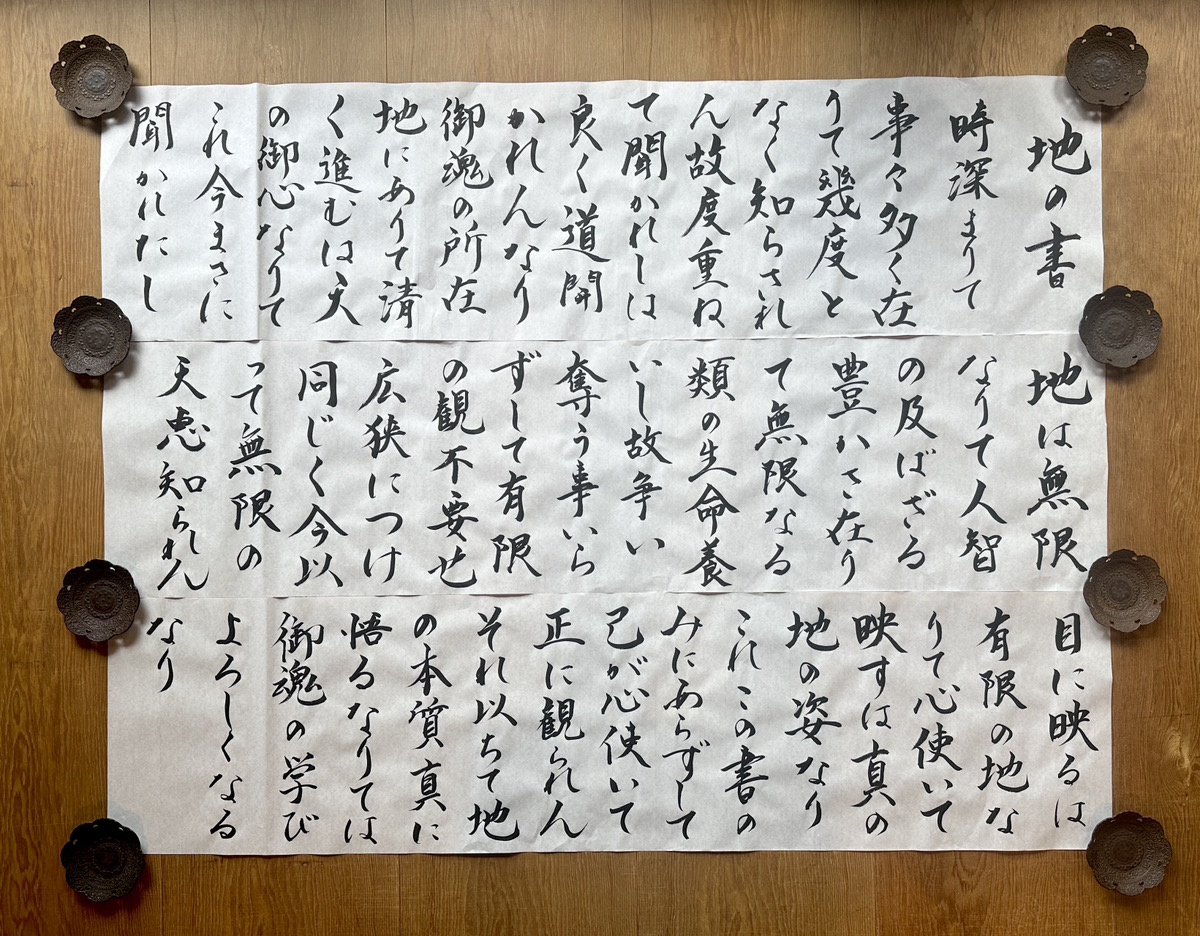 地の書
時深まりて
事々多く在
りて幾度と
なく知らされ
ん故度重ね
て聞かれしは
良く道開
かれんなり
御魂の所在
地にありて清
く進むは天
の御心なりて
これ今まさに
聞かれたし
地は無限
なりて人智
の及ばざる
豊かさ在り
て無限なる
類の生命養
いし故争い
奪う事いら
ずして有限
の観不要せ
広狭につけ
同じく今以
って無限の
天恵知られん
目に映るは
有限の地な
りて心使いて
映すは真の
地の姿なり
これこの書の
みにあらずして
己が心使いて
正に観られん
それ以ちて地
の本質真に
悟るなりては
御魂の学び
よろしくなる
なり